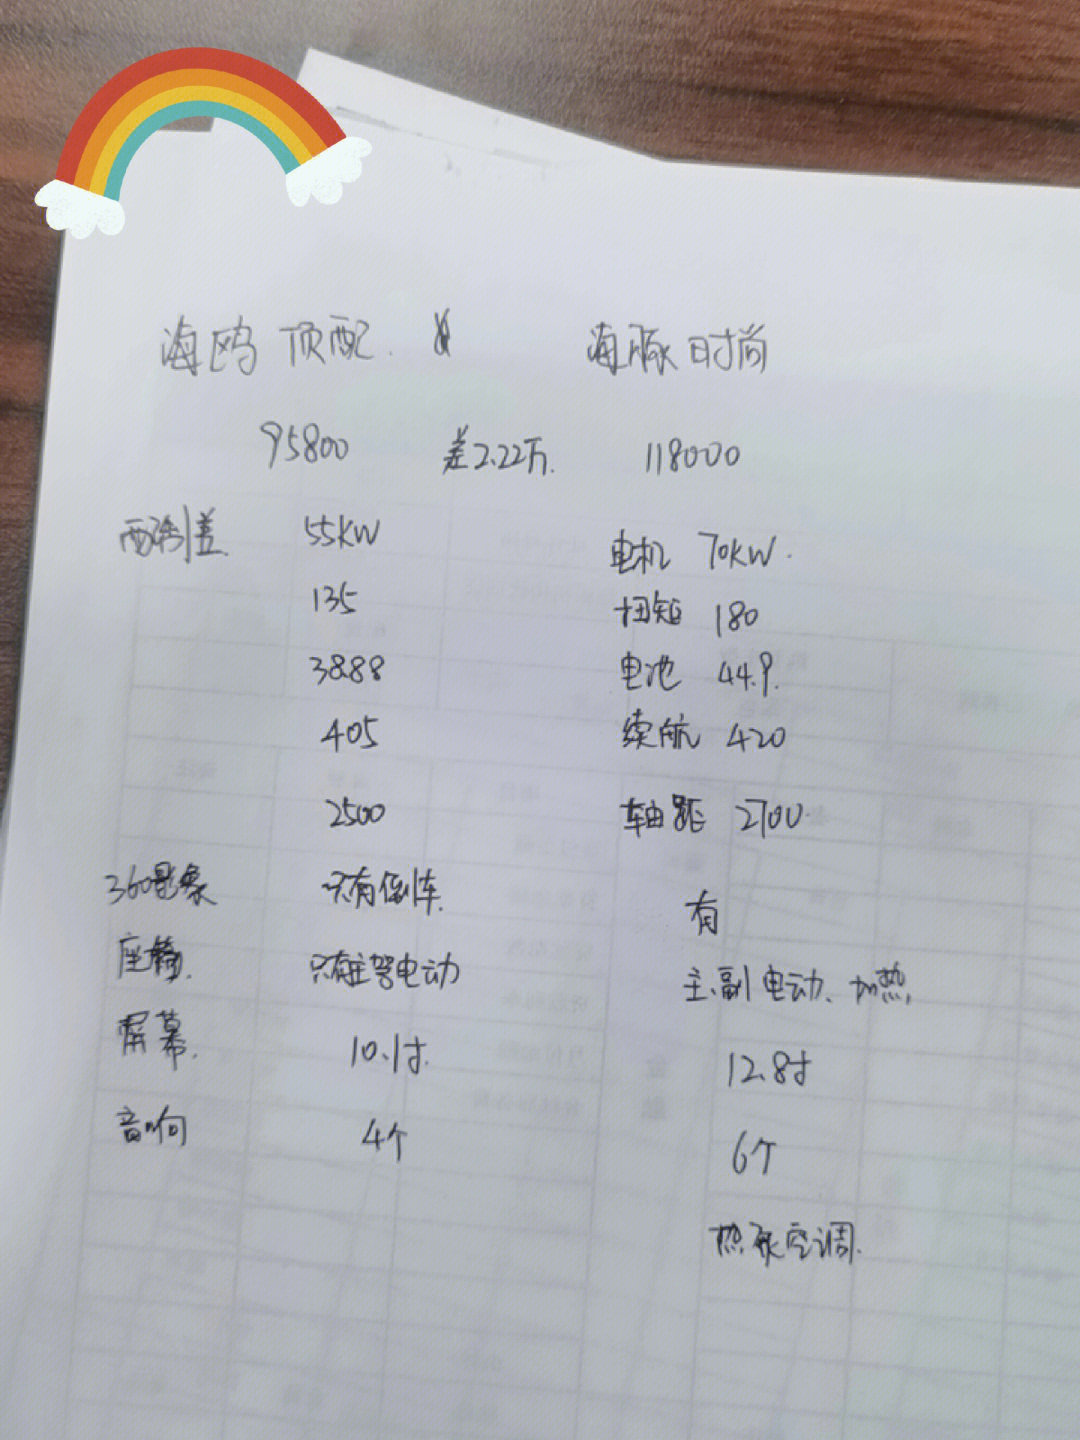 海鸥顶配. 海豚时尚
95800 差2.22万. 118000
配制差. 55KW 电机 70KW.
135 扭矩 180
38.88 电池 44.9.
405 续航 420
2500 轴距 2700.
360影象 只有倒车. 有
座椅. 只有主驾电动 主、副电动、加热,
屏幕. 10.1寸. 12.8寸
音响 4个 6个
热泵空调.